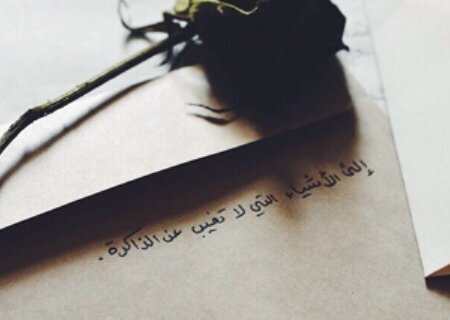 إلى الأشياء التي لا تغيب عن الذاكرة .